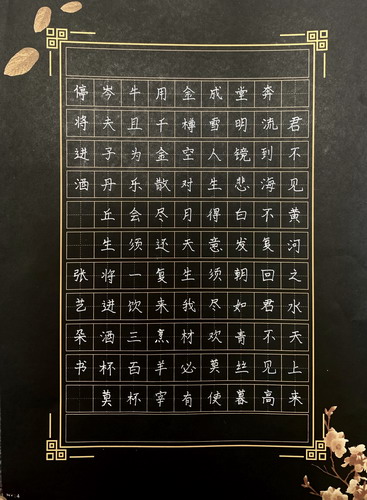 君不见黄河之水天上来
奔流到海不复回君不见高
堂明镜悲白发朝如青丝暮
成雪人生得意须尽欢莫使
金樽空对月天生我材必有
用千金散尽还复来烹羊宰
牛且为乐会须一饮三百杯
岑夫子丹丘生将进酒杯莫
停将进酒 张艺朵书